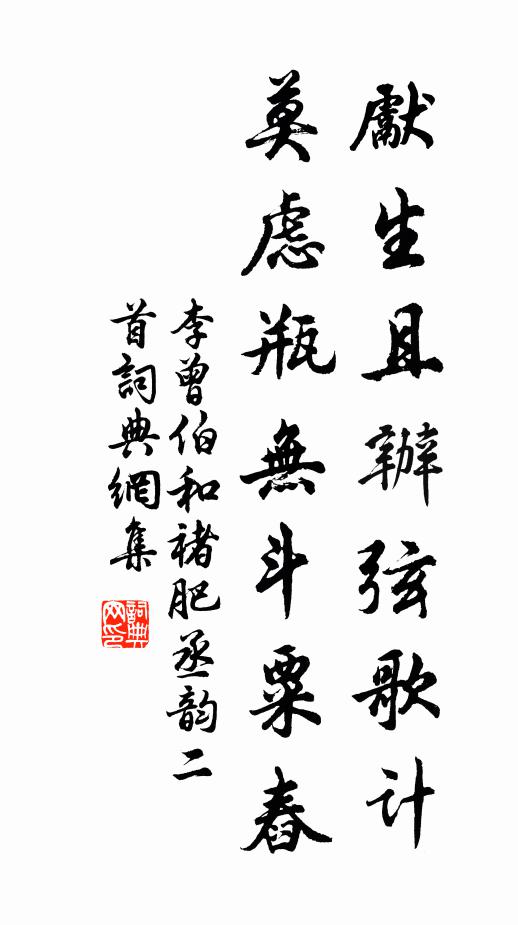 獻生且辦弦歌计
莫慮瓶無斗粟舂
李曾伯和褚肥丞韵二
首詞典網集
詞典网印